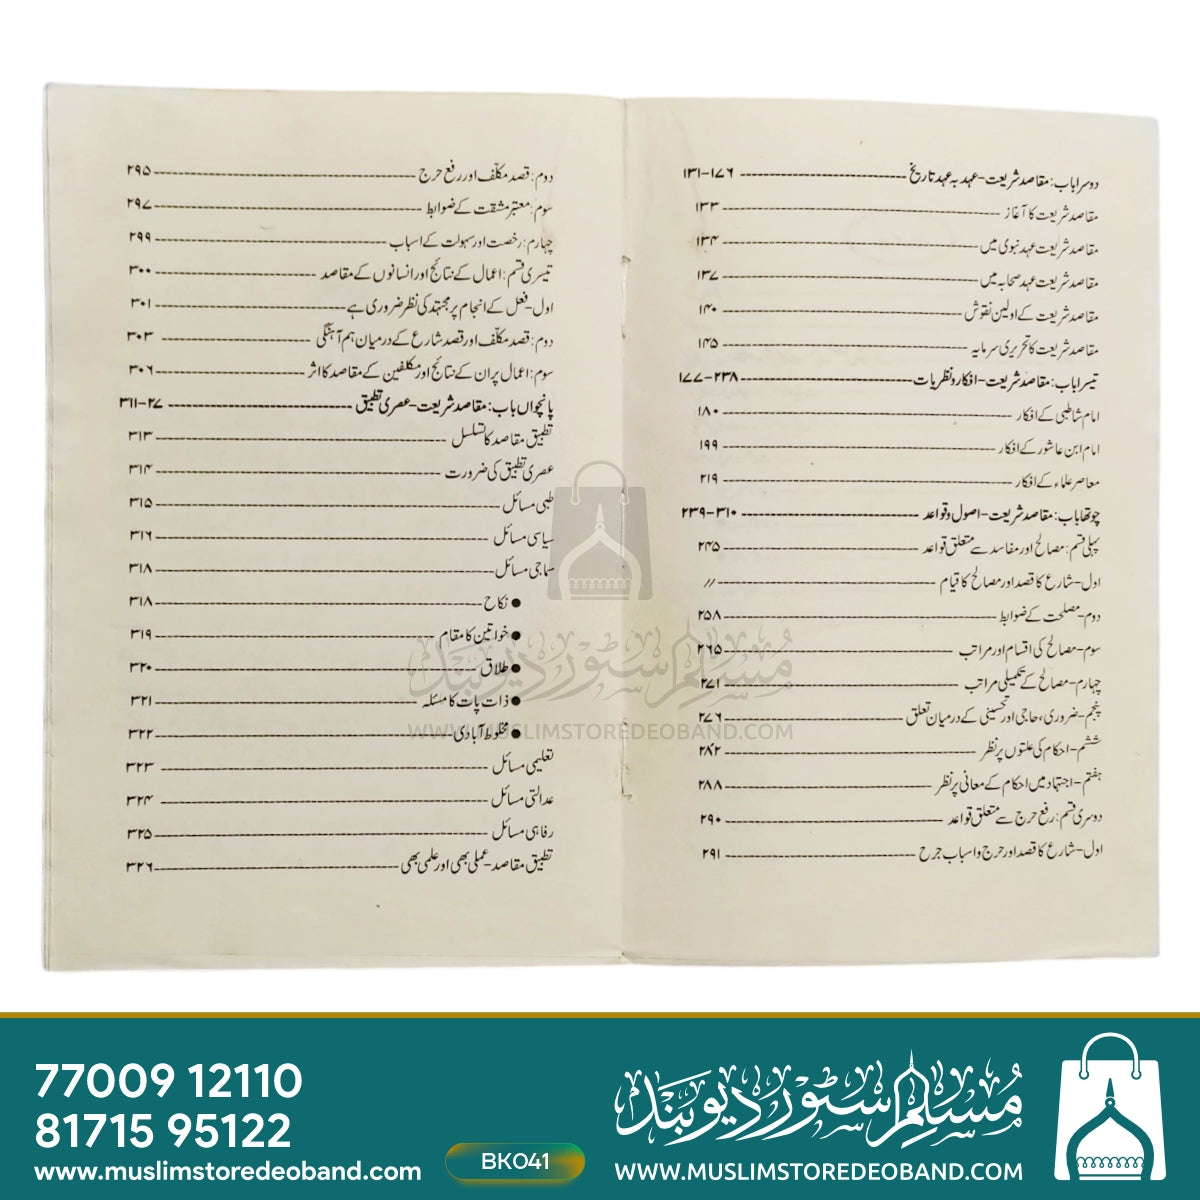 دوسرا باب: مقاصد شریعت - عہد بہ عہد تاریخ ---------- ۱۳۱-۱۷۶
مقاصد شریعت کا آغاز ---------- ۱۳۳
مقاصد شریعت عہد نبوی میں ---------- ۱۳۴
مقاصد شریعت عہد صحابہ میں ---------- ۱۳۷
مقاصد شریعت کے اولین نقوش ---------- ۱۴۰
مقاصد شریعت کا تحریری سرمایہ ---------- ۱۴۵
تیسرا باب: مقاصد شریعت - افکار و نظریات ---------- ۱۷۷-۲۳۸
امام شاطبی کے افکار ---------- ۱۸۰
امام ابن عاشور کے افکار ---------- ۱۹۹
معاصر علماء کے افکار ---------- ۲۱۹
چوتھا باب: مقاصد شریعت - اصول و قواعد ---------- ۲۳۹-۳۱۰
پہلی قسم: مصالح اور مفاسد سے متعلق قواعد ---------- ۲۴۵
اول - شارع کا قصد اور مصالح کا قیام ---------- //
دوم - مصلحت کے ضوابط ---------- ۲۵۸
سوم - مصالح کی اقسام اور مراتب ---------- ۲۶۵
چہارم - مصالح کے تکمیلی مراتب ---------- ۲۷۱
پنجم - ضروری، حاجی اور تحسینی کے درمیان تعلق ---------- ۲۷۶
ششم - احکام کی علتوں پر نظر ---------- ۲۸۲
ہفتم - اجتہاد میں احکام کے معانی پر نظر ---------- ۲۸۸
دوسری قسم: رفع حرج سے متعلق قواعد ---------- ۲۹۰
اول - شارع کا قصد اور حرج و اسباب حرج ---------- ۲۹۱
دوم: قصد مکلّف اور رفع حرج ---------- ۲۹۵
سوم: معتبر مشقت کے ضوابط ---------- ۲۹۷
چہارم: رخصت اور سہولت کے اسباب ---------- ۲۹۹
تیسری قسم: اعمال کے نتائج اور انسانوں کے مقاصد ---------- ۳۰۰
اول - فعل کے انجام پر مجتہد کی نظر ضروری ہے ---------- ۳۰۱
دوم: قصد مکلّف اور قصد شارع کے درمیان ہم آہنگی ---------- ۳۰۳
سوم: اعمال پر ان کے نتائج اور مکلفین کے مقاصد کا اثر ---------- ۳۰۶
پانچواں باب: مقاصد شریعت - عصری تطبیق ---------- ۳۱۱-۲۷
تطبیق مقاصد کا تسلسل ---------- ۳۱۳
عصری تطبیق کی ضرورت ---------- ۳۱۴
طبی مسائل ---------- ۳۱۵
سیاسی مسائل ---------- ۳۱۶
سماجی مسائل ---------- ۳۱۸
● نکاح ---------- ۳۱۸
● خواتین کا مقام ---------- ۳۱۹
● طلاق ---------- ۳۲۰
● ذات پات کا مسئلہ ---------- ۳۲۱
● مخلوط آبادی ---------- ۳۲۲
تعلیمی مسائل ---------- ۳۲۳
عدالتی مسائل ---------- ۳۲۴
رفاہی مسائل ---------- ۳۲۵
تطبیق مقاصد - عملی بھی اور علمی بھی ---------- ۳۲۶
مسلم سٹور دیوبند
WWW.MUSLIMSTOREDEOBAND.COM
77009 12110
81715 95122
www.muslimstoredeoband.com
BK041
مسلم سٹور دیوبند
WWW.MUSLIMSTOREDEOBAND.COM